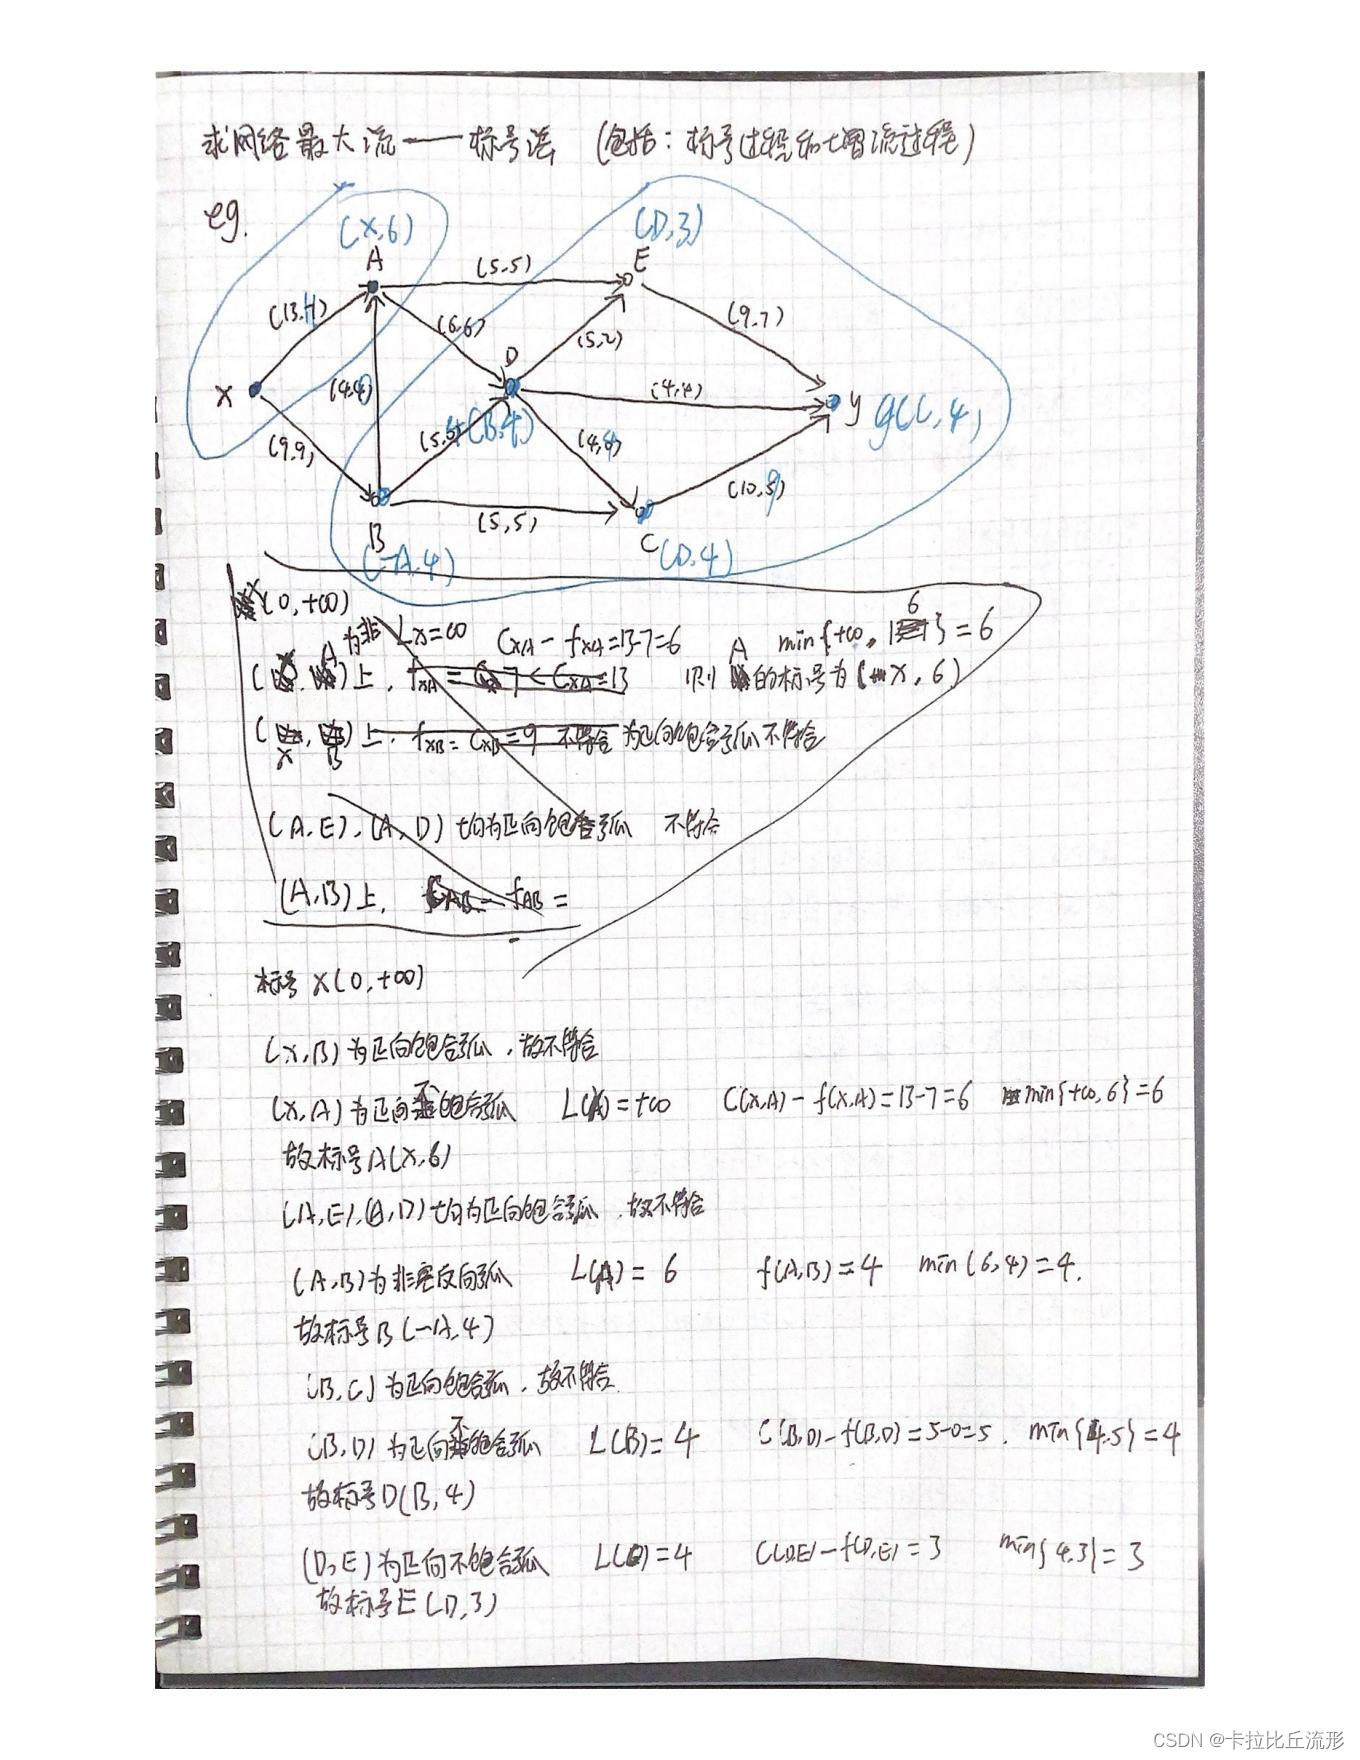 求网络最大流——标号法 (包括：标号过程和增流过程)
eg.
(X,6)
(D,3)
A
E
(5,5)
(13,11)
(6,6)
(9,7)
D
(5,2)
X
(4,4)
y
(C,4)
(B,4)
(9,9)
(4,
(10,9)
B
(5,5)
C
(-A,4)
(D,4)
X(0,+∞)
A为非 Lx=∞ CxA-fxA=13-7=6 A min{+∞, 6}=6
( X, A )上, fxA = 7 < CxA=13 则 的标号为(X, 6)
( X, B )上, fxB=CxB=9 不符合 为正向饱合弧不符合
(A,E),(A,D) 均为正向饱合弧 不符合
(A,B)上, fAB =
标号 X(0,+∞)
(X,B)为正向饱合弧,故不符合
(X,A)为正向不饱合弧 L(A)=+∞ C(X,A)-f(X,A)=13-7=6 min{+∞,6}=6
故标号A(X,6)
(A,E),(A,D)均为正向饱合弧,故不符合
(A,B)为非零反向弧 L(A)= 6 f(A,B)=4 min(6,4)=4.
故标号B(-A,4)
(B,C)为正向饱合弧,故不符合.
(B,D)为正向不饱合弧 L(B)=4 C(B,D)-f(B,D)=5-0=5. min{4,5}=4
故标号D(B,4)
(D,E)为正向不饱合弧 L(D)=4 C(D,E)-f(D,E)=3 min{4,3}=3
故标号E(D,3)
CSDN @卡拉比丘流形